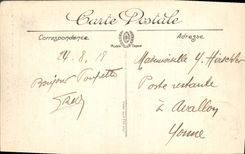 Carte Postale
Correspondance
Adresse
24.8.18
Bonjour Poupette
Mademoiselle Y. Hirschler
Poste restante
à Avallon
Yonne